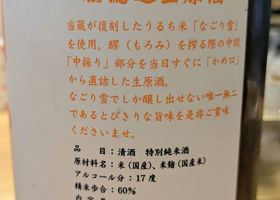 当蔵が復刻したうるち米「なごり雪」
を使用。醪（もろみ）を搾る際の中間
「中採り」部分を当日すぐに「かめ口」
から直詰した生原酒。
なごり雪でしか醸し出せない唯一無二
であるとびきりな旨味を是非ご賞味
くださいませ。
品目：清酒 特別純米酒
原材料名：米（国産）、米麹（国産米）
アルコール分：17度
精米歩合：60%
内容量